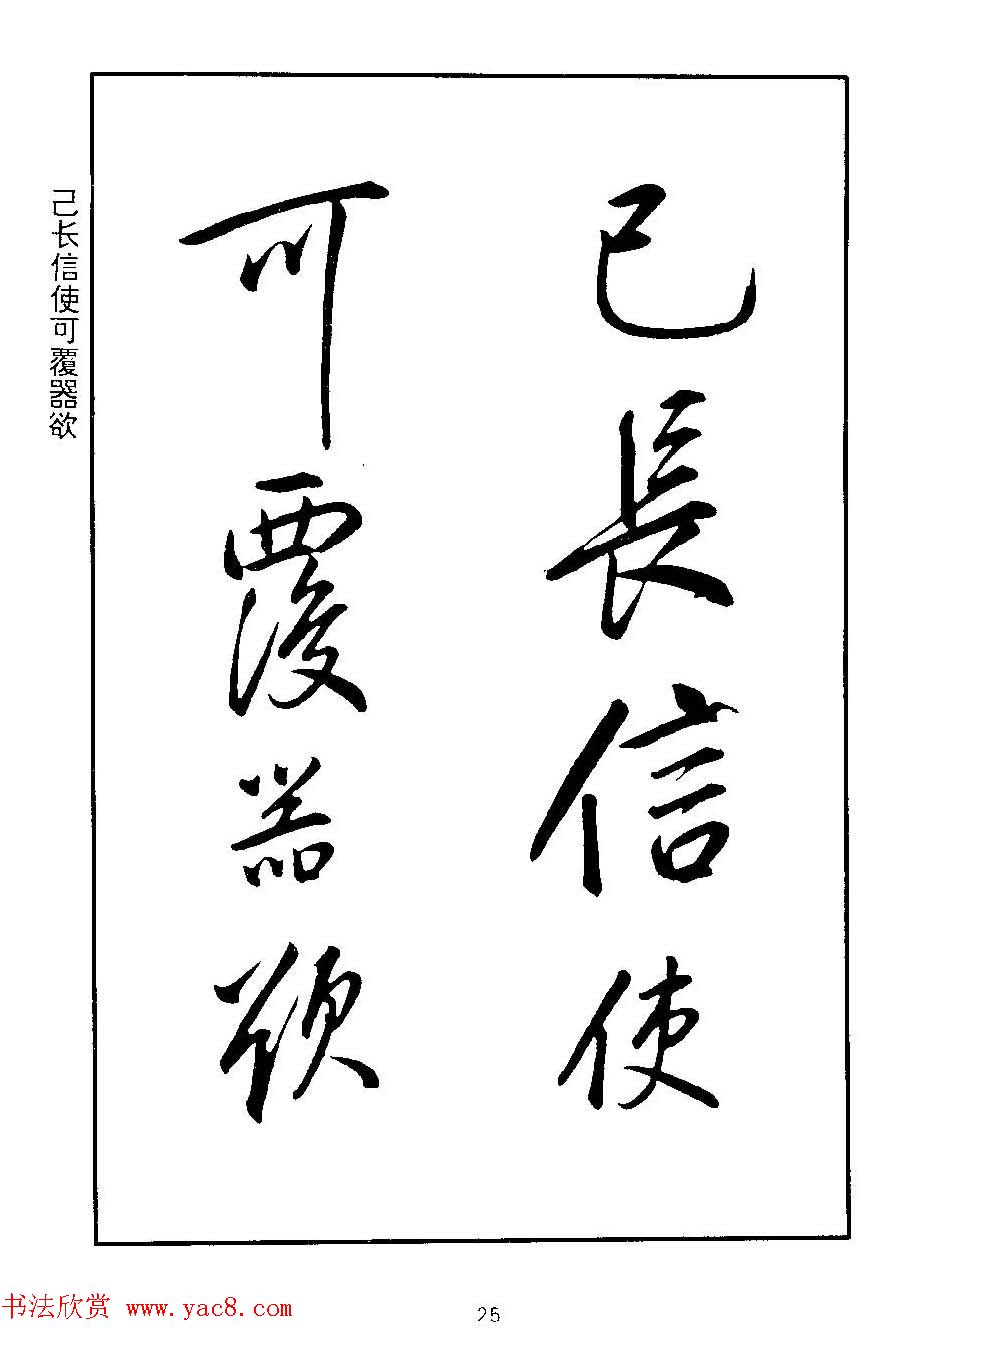 己長信使
可覆器欲
己长信使可覆器欲
书法欣赏 www.yac8.com
25